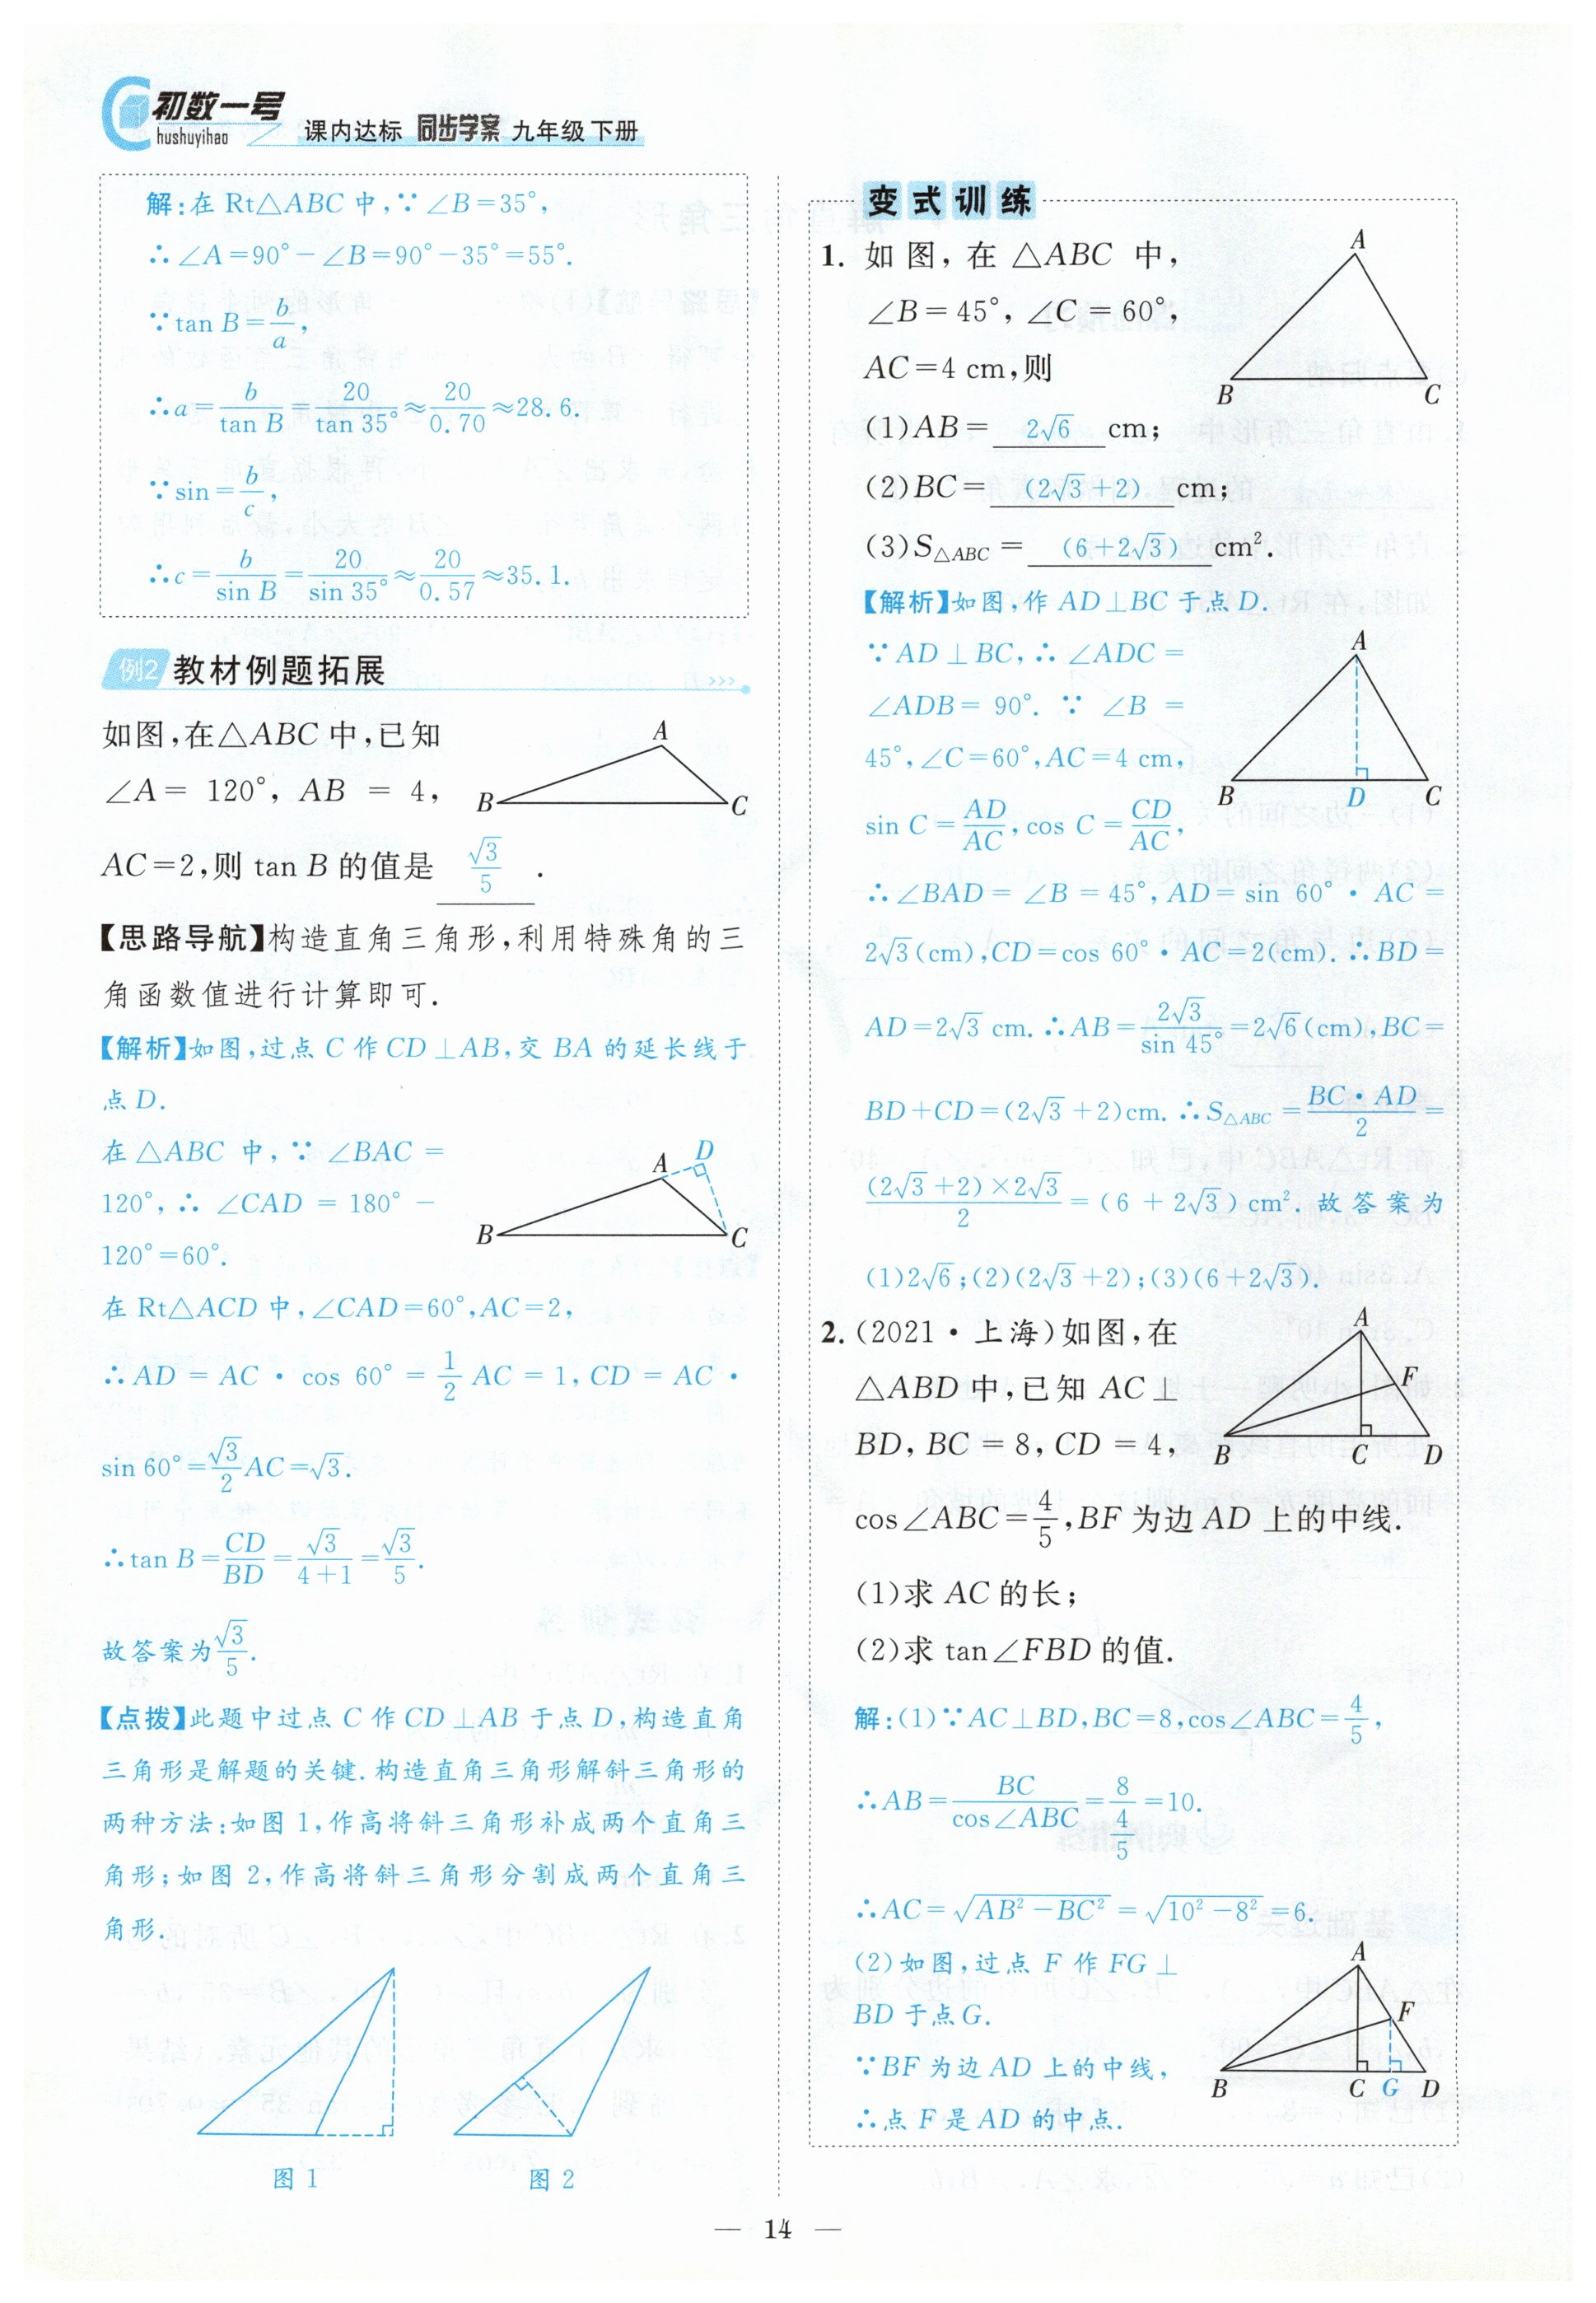 初数一号
hushuyihao
课内达标 同步学案 九年级下册
解:在 Rt△ABC 中,∵∠B=35°,
∴∠A=90°-∠B=90°-35°=55°.
∵tan B=b/a,
∴a=b/tan B=20/tan 35°≈20/0.70≈28.6.
∵sin=b/c,
∴c=b/sin B=20/sin 35°≈20/0.57≈35.1.
例2 教材例题拓展
如图,在△ABC 中,已知
∠A= 120°, AB = 4,
AC=2,则 tan B 的值是 √3/5 .
A
B
C
【思路导航】构造直角三角形,利用特殊角的三
角函数值进行计算即可.
【解析】如图,过点 C 作 CD⊥AB,交 BA 的延长线于
点 D.
在 △ABC 中, ∵ ∠BAC =
120°, ∴ ∠CAD = 180° -
120°=60°.
A
D
B
C
在 Rt△ACD 中,∠CAD=60°,AC=2,
∴ AD = AC · cos 60° = 1/2 AC = 1, CD = AC ·
sin 60°=√3/2 AC=√3.
∴tan B=CD/BD=√3/(4+1)=√3/5.
故答案为√3/5.
【点拨】此题中过点 C 作 CD⊥AB 于点 D,构造直角
三角形是解题的关键.构造直角三角形解斜三角形的
两种方法:如图 1,作高将斜三角形补成两个直角三
角形;如图 2,作高将斜三角形分割成两个直角三
角形.
图 1
图 2
变式训练
1. 如图, 在 △ABC 中,
∠B=45°, ∠C=60°,
AC=4 cm,则
(1)AB= 2√6 cm;
(2)BC= (2√3+2) cm;
(3)S△ABC = (6+2√3) cm².
A
B
C
【解析】如图,作 AD⊥BC 于点 D.
∵ AD ⊥ BC, ∴ ∠ADC =
∠ADB= 90°. ∵ ∠B =
45°,∠C=60°,AC=4 cm,
sin C=AD/AC,cos C=CD/AC,
A
B
D
C
∴∠BAD= ∠B = 45°, AD= sin 60° · AC =
2√3(cm),CD=cos 60°·AC=2(cm).∴BD=
AD=2√3 cm.∴AB=2√3/sin 45°=2√6(cm),BC=
BD+CD=(2√3+2)cm.∴S△ABC=BC·AD/2=
(2√3+2)×2√3/2=(6+2√3)cm².故答案为
(1)2√6;(2)(2√3+2);(3)(6+2√3).
2. (2021·上海)如图,在
△ABD 中,已知 AC⊥
BD, BC = 8, CD = 4,
cos∠ABC=4/5,BF 为边 AD 上的中线.
A
F
B
C
D
(1)求 AC 的长;
(2)求 tan∠FBD 的值.
解:(1)∵AC⊥BD,BC=8,cos∠ABC=4/5,
∴AB=BC/cos∠ABC=8/(4/5)=10.
∴AC=√(AB²-BC²)=√(10²-8²)=6.
(2)如图,过点 F 作 FG⊥
BD 于点G.
∵BF 为边 AD 上的中线,
∴点 F 是 AD 的中点.
A
F
B
C
G
D
— 14 —